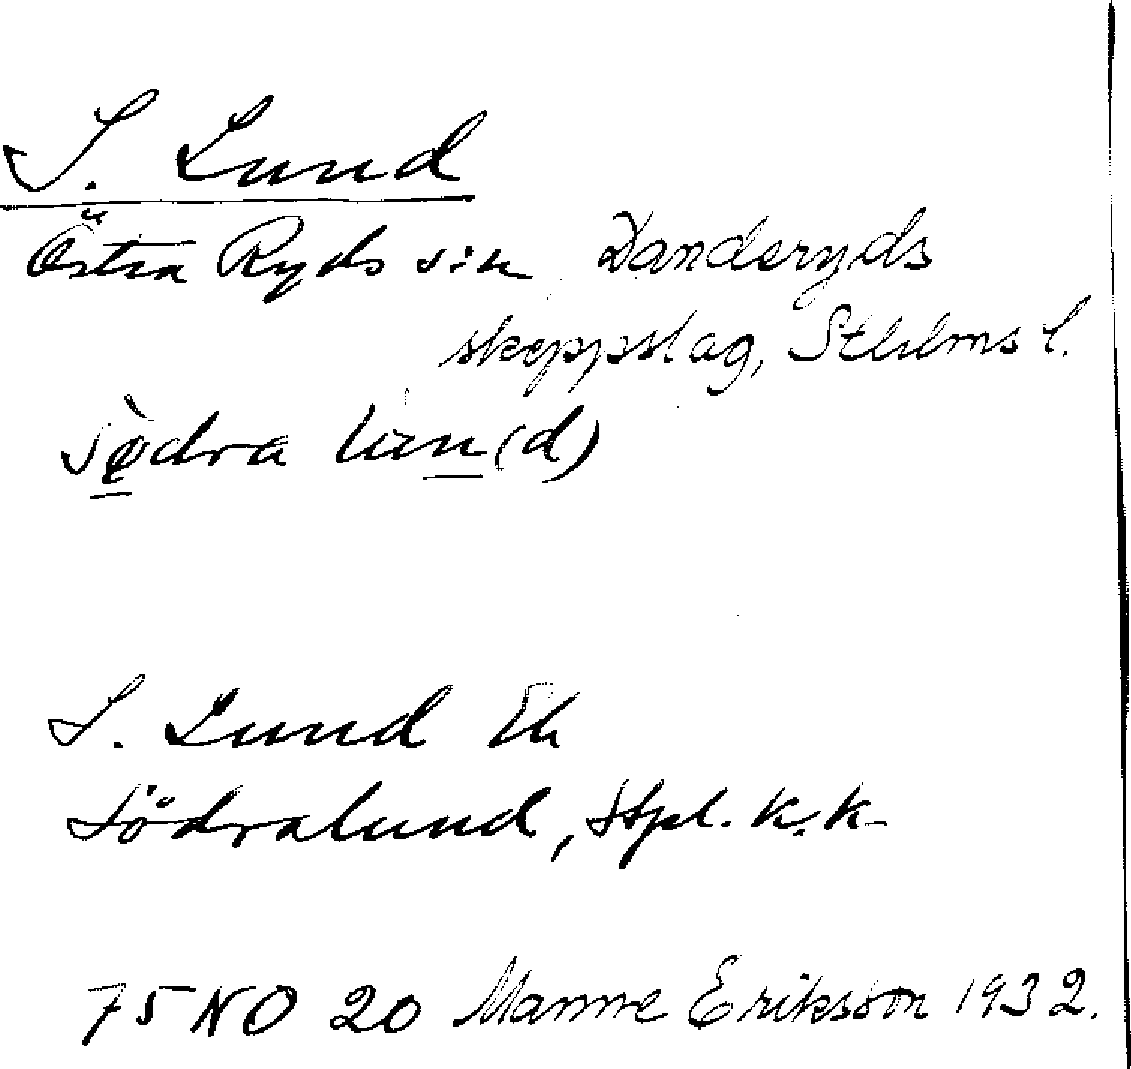 S. Lund
Östra Ryds sn Danderyds
skeppslag, Sthlms l.
sø̀dra lun(d)
S. Lund Ek
Södralund, Stpl. K.K.
75 NO 20 Manne Eriksson 1932.